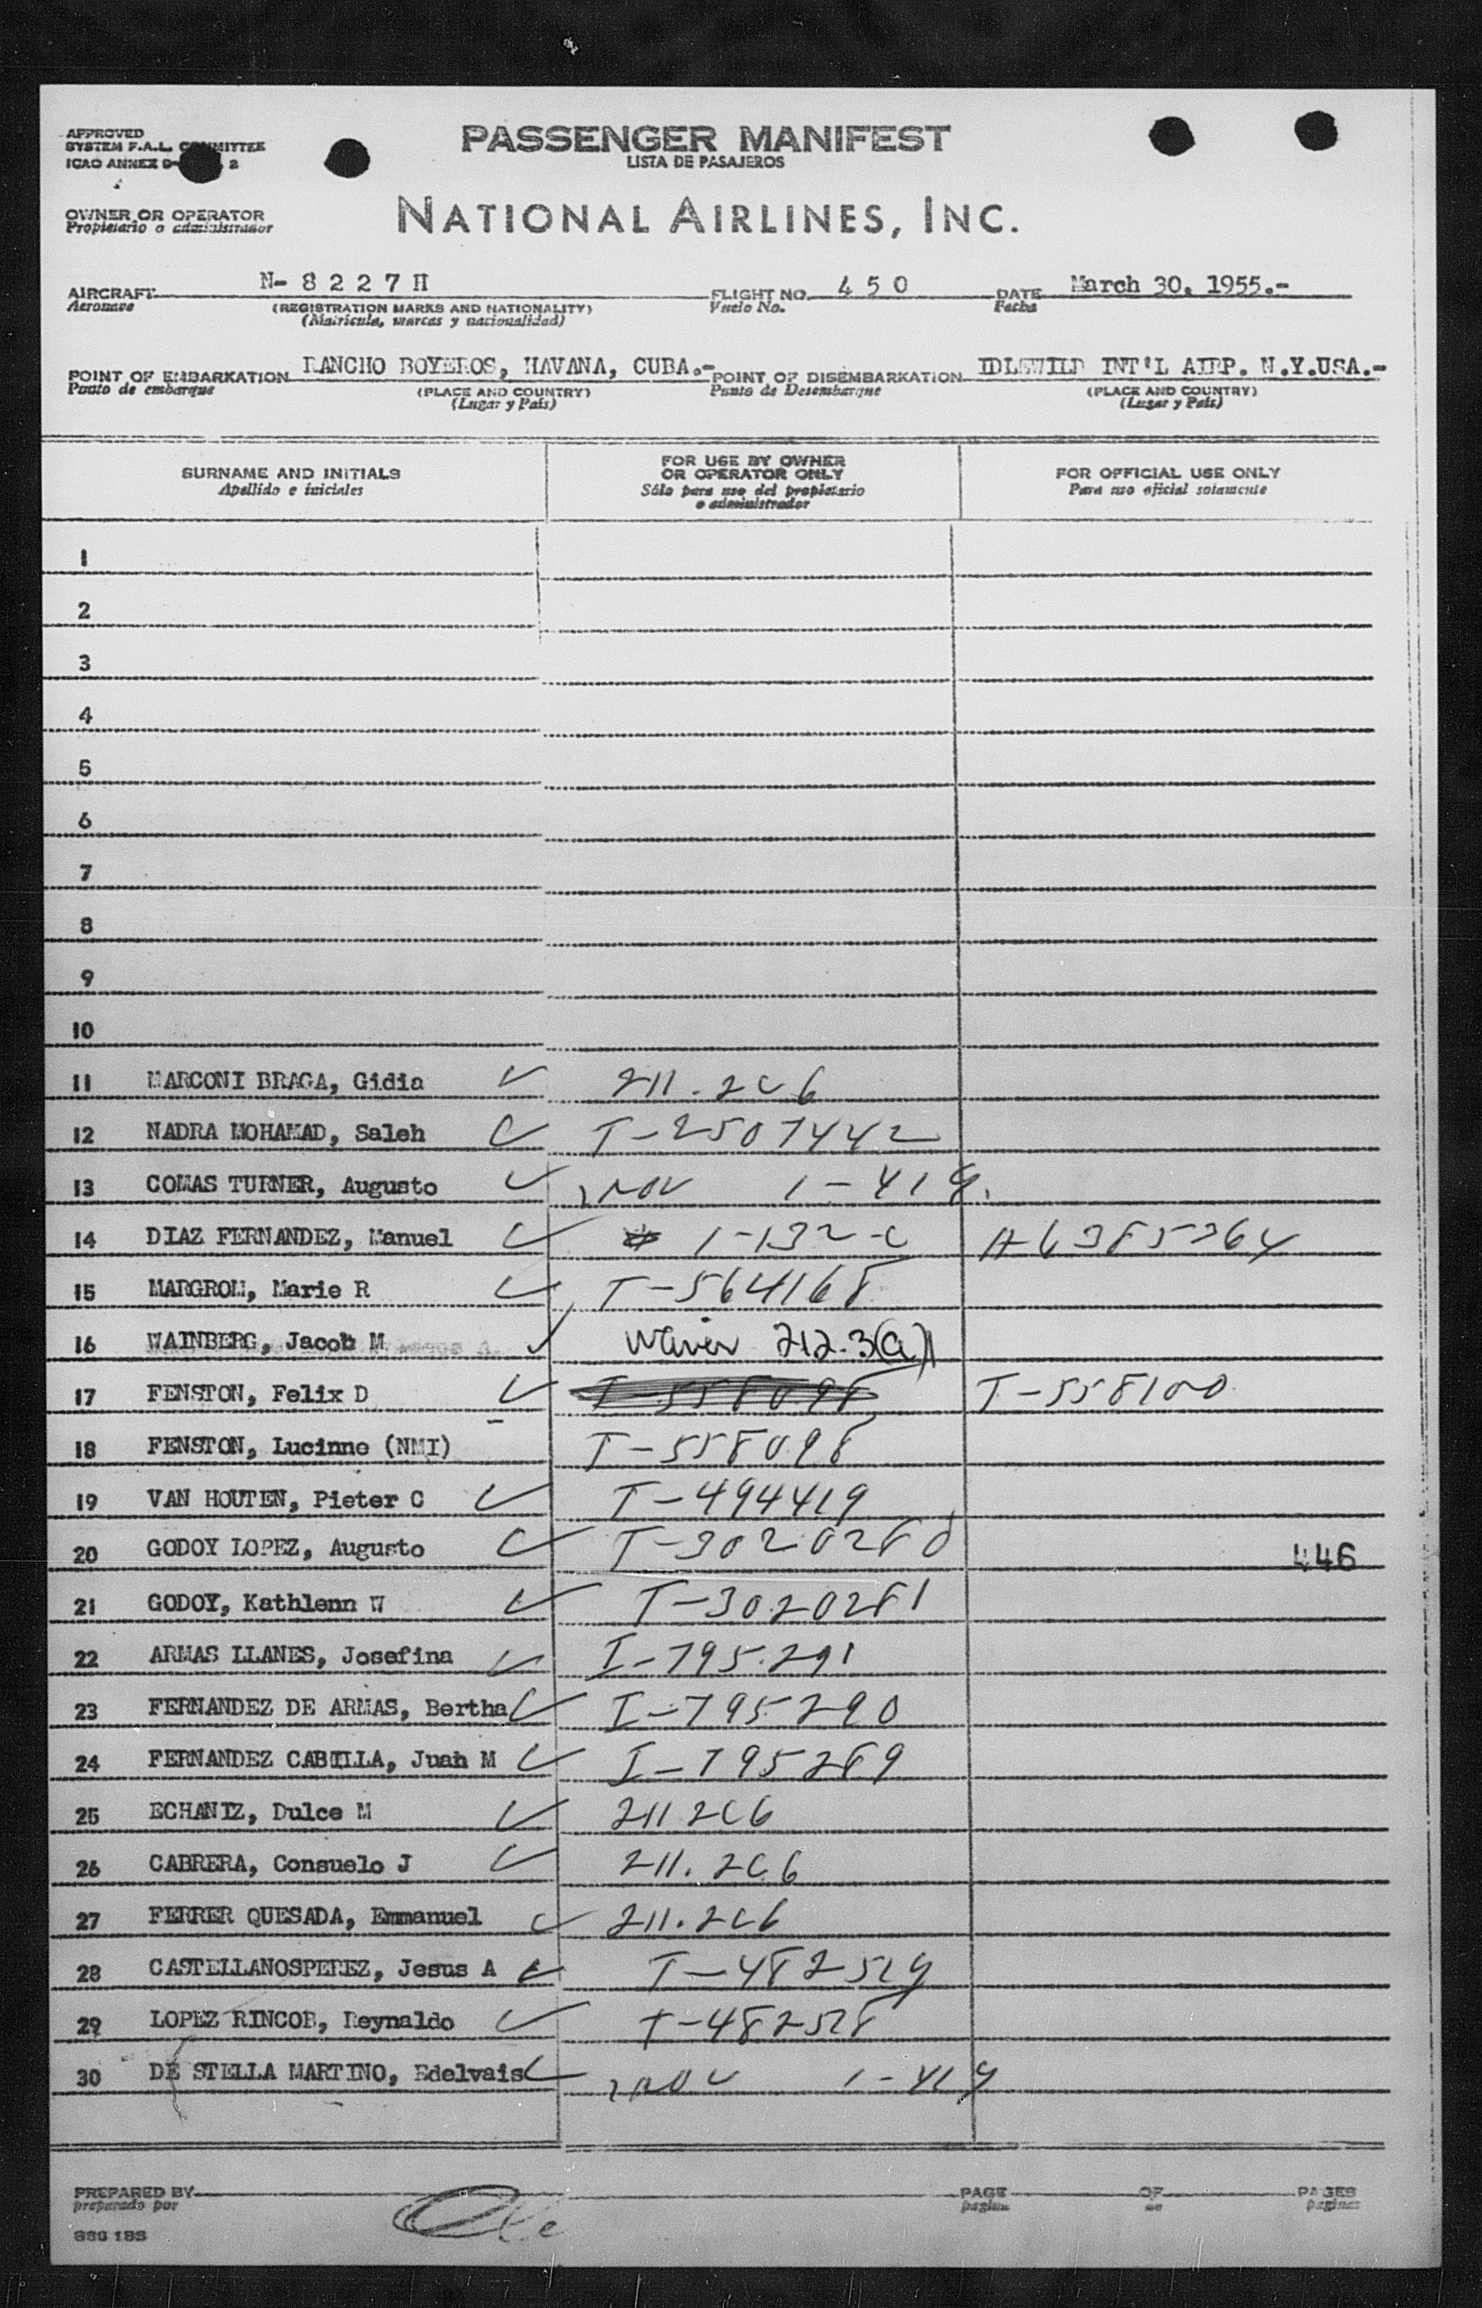 APPROVED
SYSTEM F.A.L. COMMITTEE
ICAO ANNEX 9- 2
PASSENGER MANIFEST
LISTA DE PASAJEROS
OWNER OR OPERATOR
Propietario o administrador
NATIONAL AIRLINES, INC.
AIRCRAFT N- 8 2 2 7 H FLIGHT NO. 4 5 0 DATE March 30, 1955.-
Aeronave (REGISTRATION MARKS AND NATIONALITY) Vuelo No. Fecha
(Matricula, marcas y nacionalidad)
POINT OF EMBARKATION RANCHO BOYEROS, HAVANA, CUBA.- POINT OF DISEMBARKATION IDLEWILD INT'L AIRP. N.Y.USA.-
Punto de embarque (PLACE AND COUNTRY) Punto de Desembarque (PLACE AND COUNTRY)
(Lugar y País) (Lugar y País)
SURNAME AND INITIALS FOR USE BY OWNER OR OPERATOR ONLY FOR OFFICIAL USE ONLY
Apellido e iniciales Sólo para uso del propietario o administrador Para uso oficial solamente
1
2
3
4
5
6
7
8
9
10
11 MARCONI BRAGA, Gidia 211.2C6
12 NADRA MOHAMAD, Saleh T-2507442
13 COMAS TURNER, Augusto 1-419.
14 DIAZ FERNANDEZ, Manuel 1-132-C A6385364
15 MARGROM, Marie R T-564168
16 WAINBERG, Jacob M Waiver 212.3(a)
17 FENSTON, Felix D T-558098 T-558100
18 FENSTON, Lucinne (NMI) T-558098
19 VAN HOUTEN, Pieter C T-494419
20 GODOY LOPEZ, Augusto T-3020280 446
21 GODOY, Kathlenn W T-3020281
22 ARMAS LLANES, Josefina I-795.291
23 FERNANDEZ DE ARMAS, Bertha I-795290
24 FERNANDEZ CABILLA, Juan M I-795289
25 ECHANIZ, Dulce M 211.2C6
26 CABRERA, Consuelo J 211.2C6
27 FERRER QUESADA, Emmanuel 211.2C6
28 CASTELLANOSPEREZ, Jesus A T-482529
29 LOPEZ RINCOB, Reynaldo T-482528
30 DE STELLA MARTINO, Edelvais 1-419
PREPARED BY PAGE OF PAGES
preparado por pagina de paginas